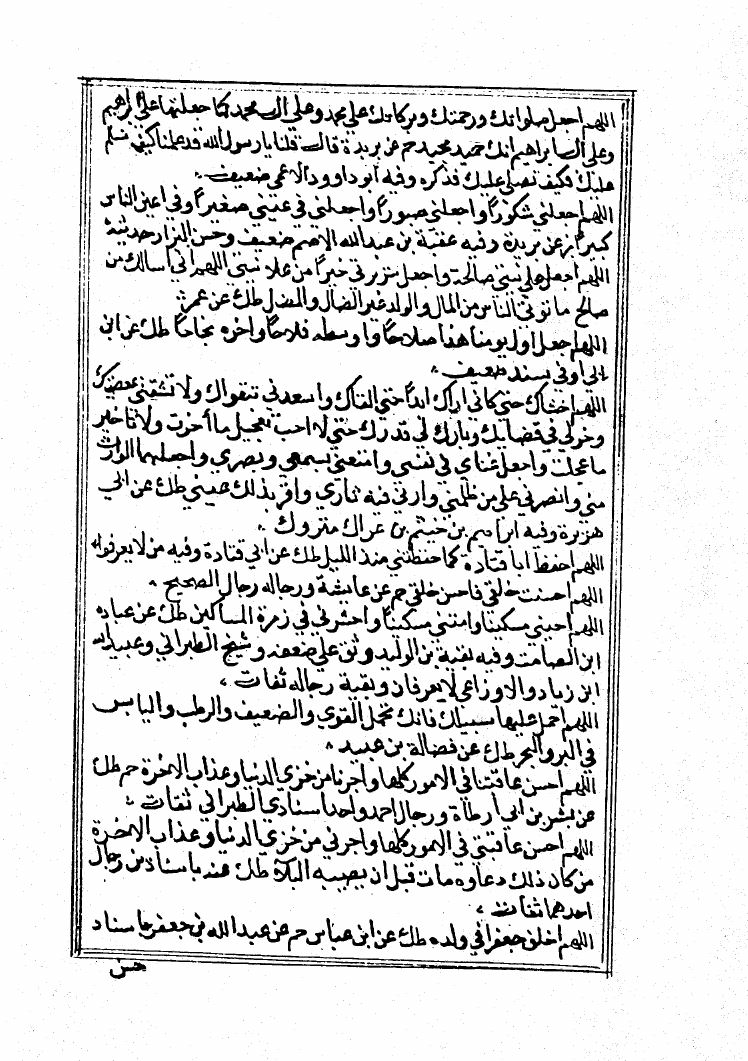 اللهم اجعل صلواتك ورحمتك وبركاتك على محمد وعلى ال محمد كما جعلتها على ابراهيم
وعلى ال ابراهيم انك حميد مجيد حم عن بريدة قال قلنا يارسول الله قد علمنا كيف نسلم
عليك فكيف نصلي عليك فذكره وفيه ابو داوود الاعمى ضعيف
اللهم اجعلني شكورًا واجعلني صبورًا واجعلني في عيني صغيرًا وفي اعين الناس
كبيرًا بز عن بريدة وفيه عقبة بن عبدالله الاصم ضعيف وحسن البزار حديثه
اللهم اجعل علانيتي صالحة واجعل سريرتي خيرًا من علانيتي اللهم اني اسالك من
صالح ما توتي الناس من المال والولد غير الضال والمضل طك عن عمر
اللهم اجعل اول يومنا هذا صلاحًا واوسطه فلاحًا واخره نجاحًا طك عن ابن
ابي اوفى بسند ضعيف
اللهم اجعلني اخشاك حتى كاني اراك ابدًا حتى القاك واسعدني بتقواك ولا تشقني بمعصيتك
وخر لي في قضايك وبارك لي في قدرك حتى لا احب تعجيل ما أخرت ولا تاخير
ما عجلت واجعل غناي في نفسي وامتعني بسمعي وبصري واجعلهما الوارث
مني وانصرني على من ظلمني وارني فيه ثاري واقر بذلك عيني طك عن ابي
هريرة وفيه ابراهيم بن خثيم بن عراك متروك
اللهم احفظ ابا قتادة كما حفظني منذ الليل طك عن ابي قتادة وفيه من لا يعرفوا
اللهم احسنت خلقي فاحسن خلقي حم عن عايشة ورجاله رجال الصحيح
اللهم احيني مسكينًا وامتني مسكينًا واحشرني في زمرة المساكين طك عن عباده
ابن الصامت وفيه بقية بن الوليد وثق على ضعفه وشيخ الطبراني وعبيد الله
ابن زياد والاوزاعي لا يعرفان وبقية رجاله ثقات
اللهم احمل عليها سبيلك فانك تحمل القوي والضعيف والرطب واليابس
في البر والبحر طك عن فضالة بن عبيد
اللهم احسن عاقبتنا في الامور كلها واجرنا من خزي الدنيا وعذاب الاخرة حم طك
عن بشر بن ابي ارطاة ورجال احمد واحد اسنادي الطبراني ثقات
اللهم احسن عاقبتي في الامور كلها واجرني من خزي الدنيا وعذاب الاخرة
من كان ذلك دعاوه مات قبل ان يصيبه البلاء طك عنه باسناد من رجال
احدهما ثقات
اللهم اخلف جعفرا في ولده طك عن ابن عباس حم عن عبد الله بن جعفر باسناد
حسن